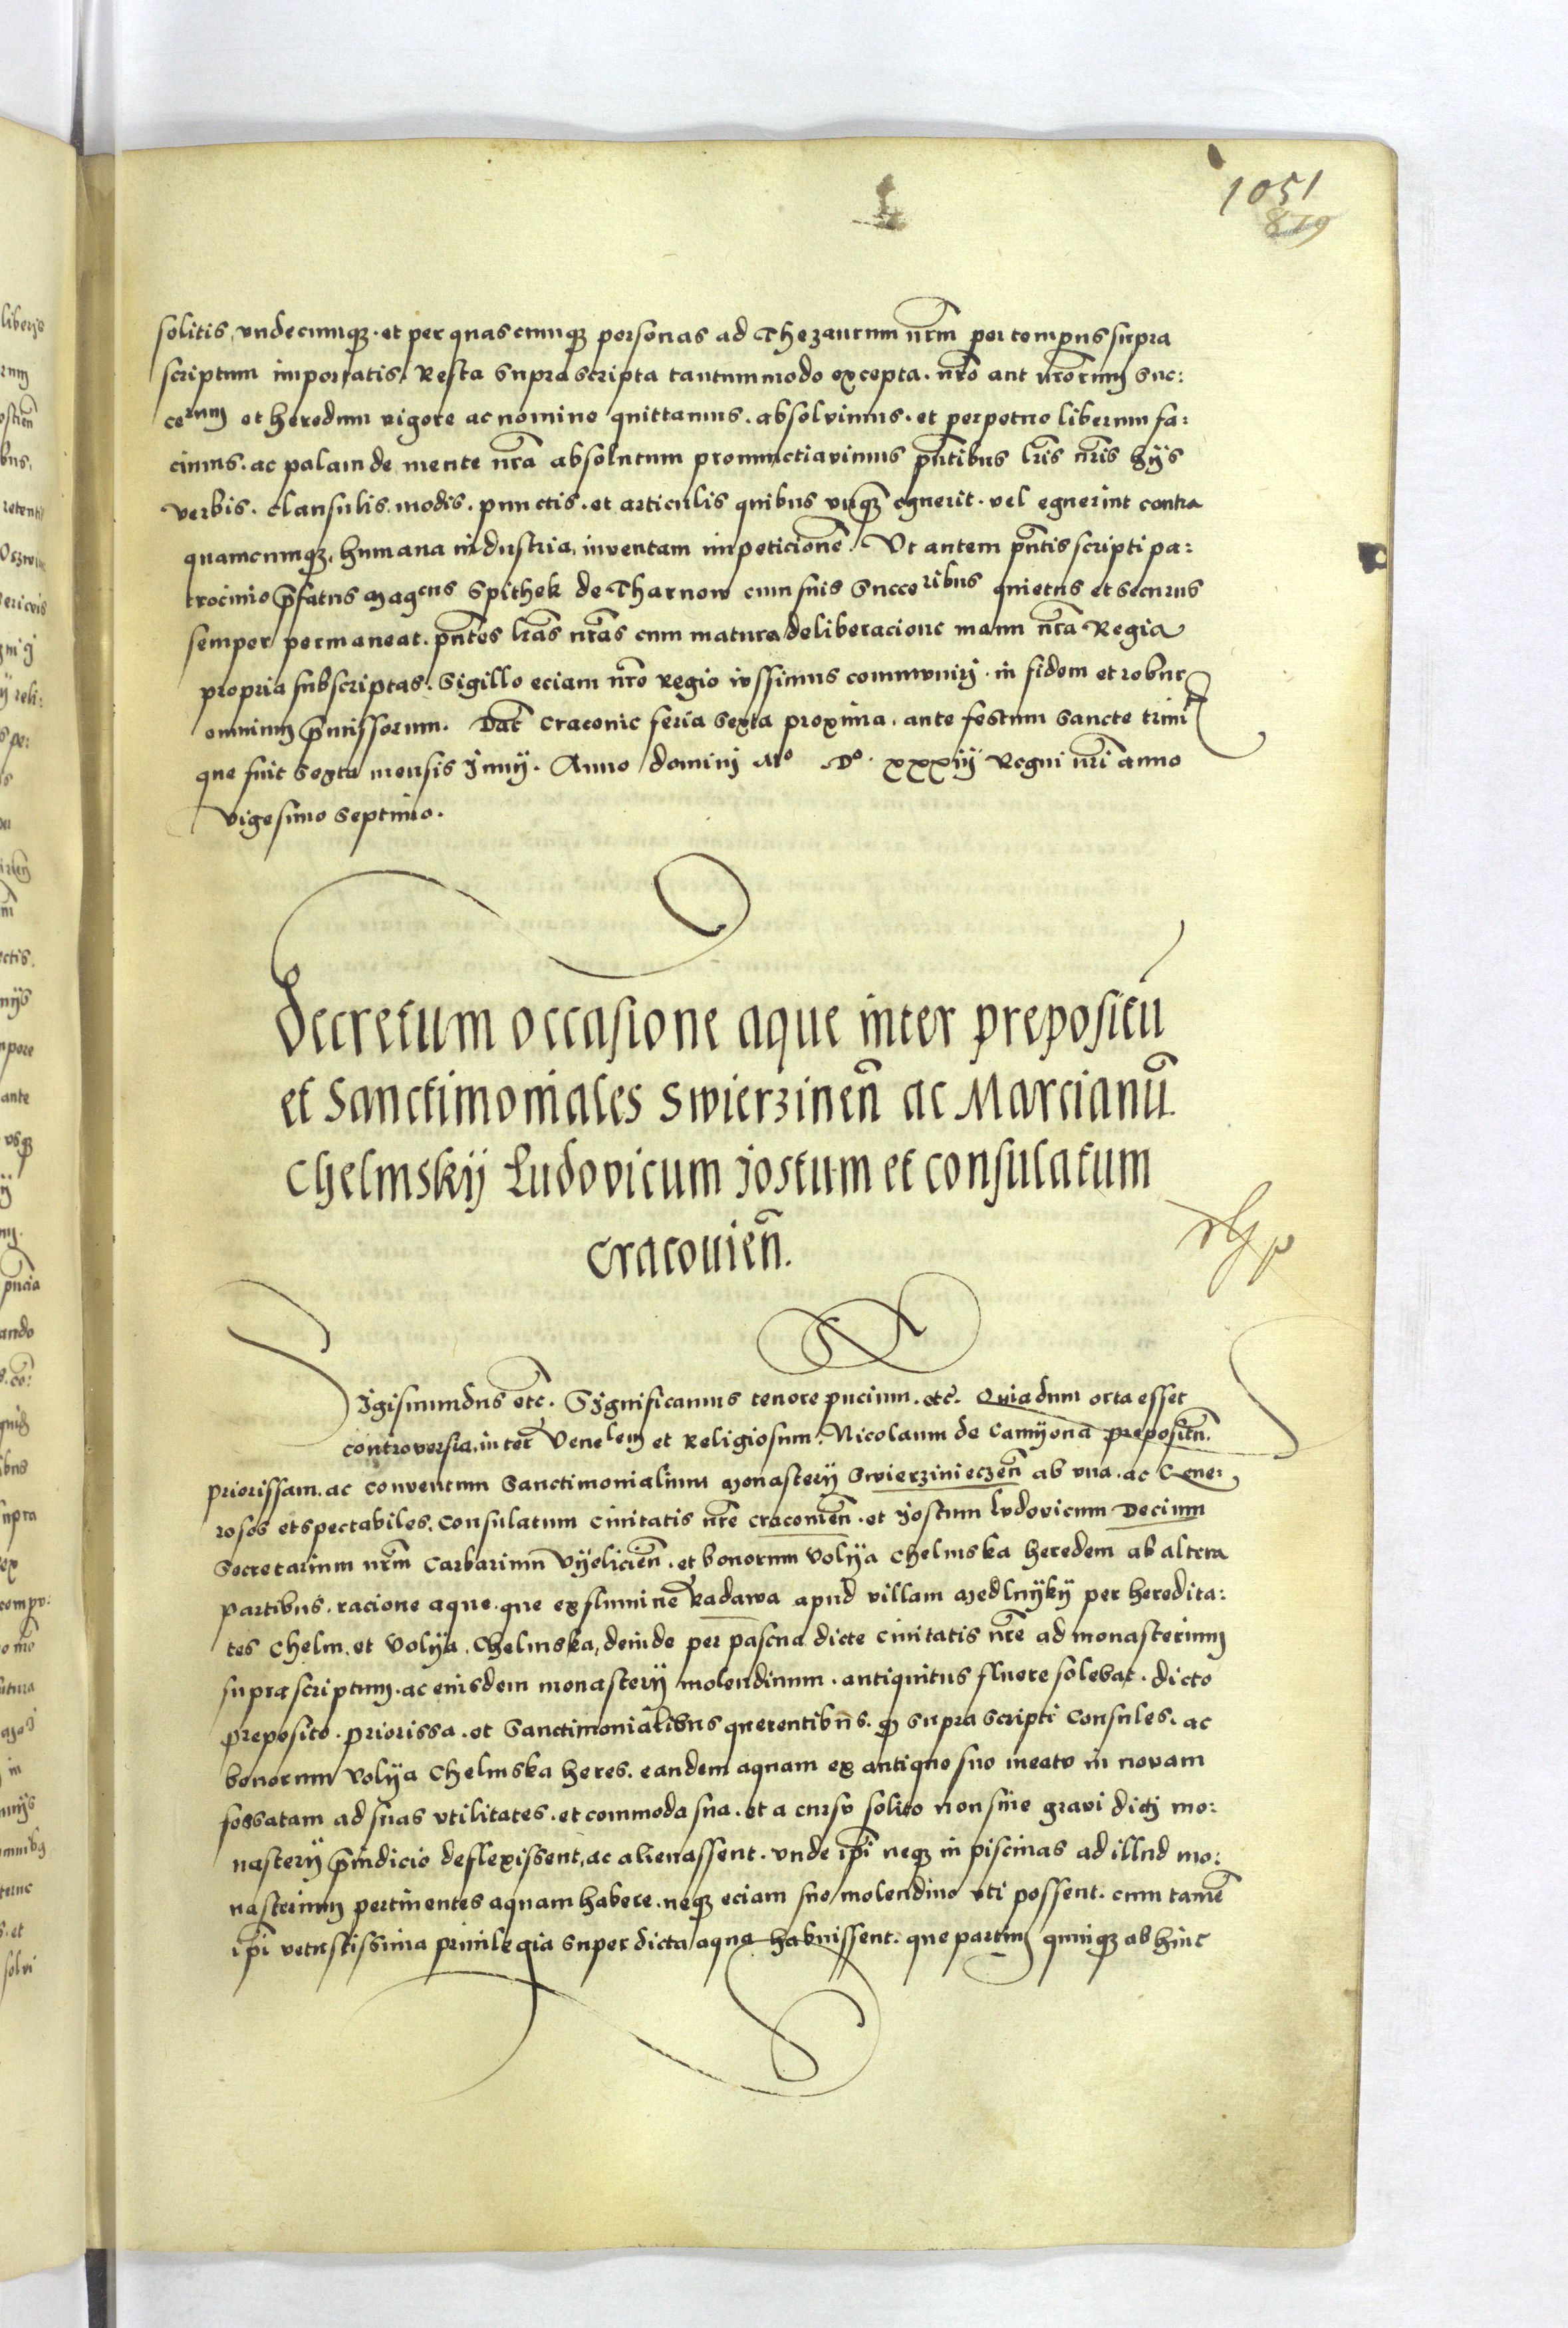 1051
819
solitis, undecumq3 . et per quascumq3 personas ad Thezaurum nr̃m per tempus supra
scriptum importatis, Resta suprascripta tantummodo excepta . nr̃o aut nr̃orum suc:
cerum et heredum vigore ac nomine quittamus . absolvimus . et perpetuo liberum fa:
cimus . ac palam de mente nr̃a absolutum pronunctiavimus pñtibus lr̃is nr̃is hijs
verbis . clausulis . modis . punctis . et articulis quibus unq3 eguerit . vel eguerint contra
quamcumq3, humana industria, inventam impeticionẽ. Ut autem pñtis scripti pa:
trocinio p̃fatus magcus Spithek de Tharnow cum suis Succeribus quietus et securus
semper permaneat . pñtes lr̃as nr̃as cum matura deliberacione manu nr̃a Regia
propria subscriptas. Sigillo eciam nr̃o regio iussimus communirj . in fidem et robur
omnium p̃missorum. Dat̃ Cracovie feria sexta proxima . ante festum Sancte trinit̃
que fuit Sexta mensis Junij . Anno dominj Mo Do . xxxiij Regni nr̃i anno
vigesimo septimo.
Decretum occasione aque inter prepositũ
et Sanctimoniales Swierzineñ ac Marcianũ
Chelmskij Ludovicum Jostum et consulatum
Cracovieñ.
Sigismundus etc̃. Significamus tenore pñcium . etc̃. Quia dum orta esset
controversia inter Venelem et Religiosum . Nicolaum de Camyona prepositũ.
priorissam . ac conventum Sanctimonialium Monasterij Swierziniecżeñ ab una . ac Gene:
rosos et spectabiles. Consulatum Civitatis nr̃e cracovieñ . et Jostum Ludovicum Decium
Secretarium nr̃m Carbarium Vyelicieñ . et bonorum Volya Chelmska heredem ab altera
partibus . racione aque . que ex flumine Radawa apud villam Medlnyky per heredita:
tes Chelm . et Volya . Chelmska, deinde per pascua dicte Civitatis nr̃e ad monasterium
suprascriptum . ac eiusdem monasterij molendinum . antiquitus fluere solebat . dicto
preposito . priorissa . et Sanctimonialibus querentibus . q3 suprascripti Consules . ac
bonorum Volya Chelmska heres . eandem aquam ex antiquo suo meatu in novam
fossatam ad suas utilitates . et commoda sua . et a cursu solito non sine gravi dictj mo:
nasterij p̃iudicio deflexissent, ac alienassent . unde ip̃i neq3 in piscinas ad illud mo:
nasterium pertinentes aquam habere . neq3 eciam suo molendino uti possent . cum tamẽ
ip̃i vetustissima privilegia super dicta aqua habuissent . que partim quinq3 abhinc